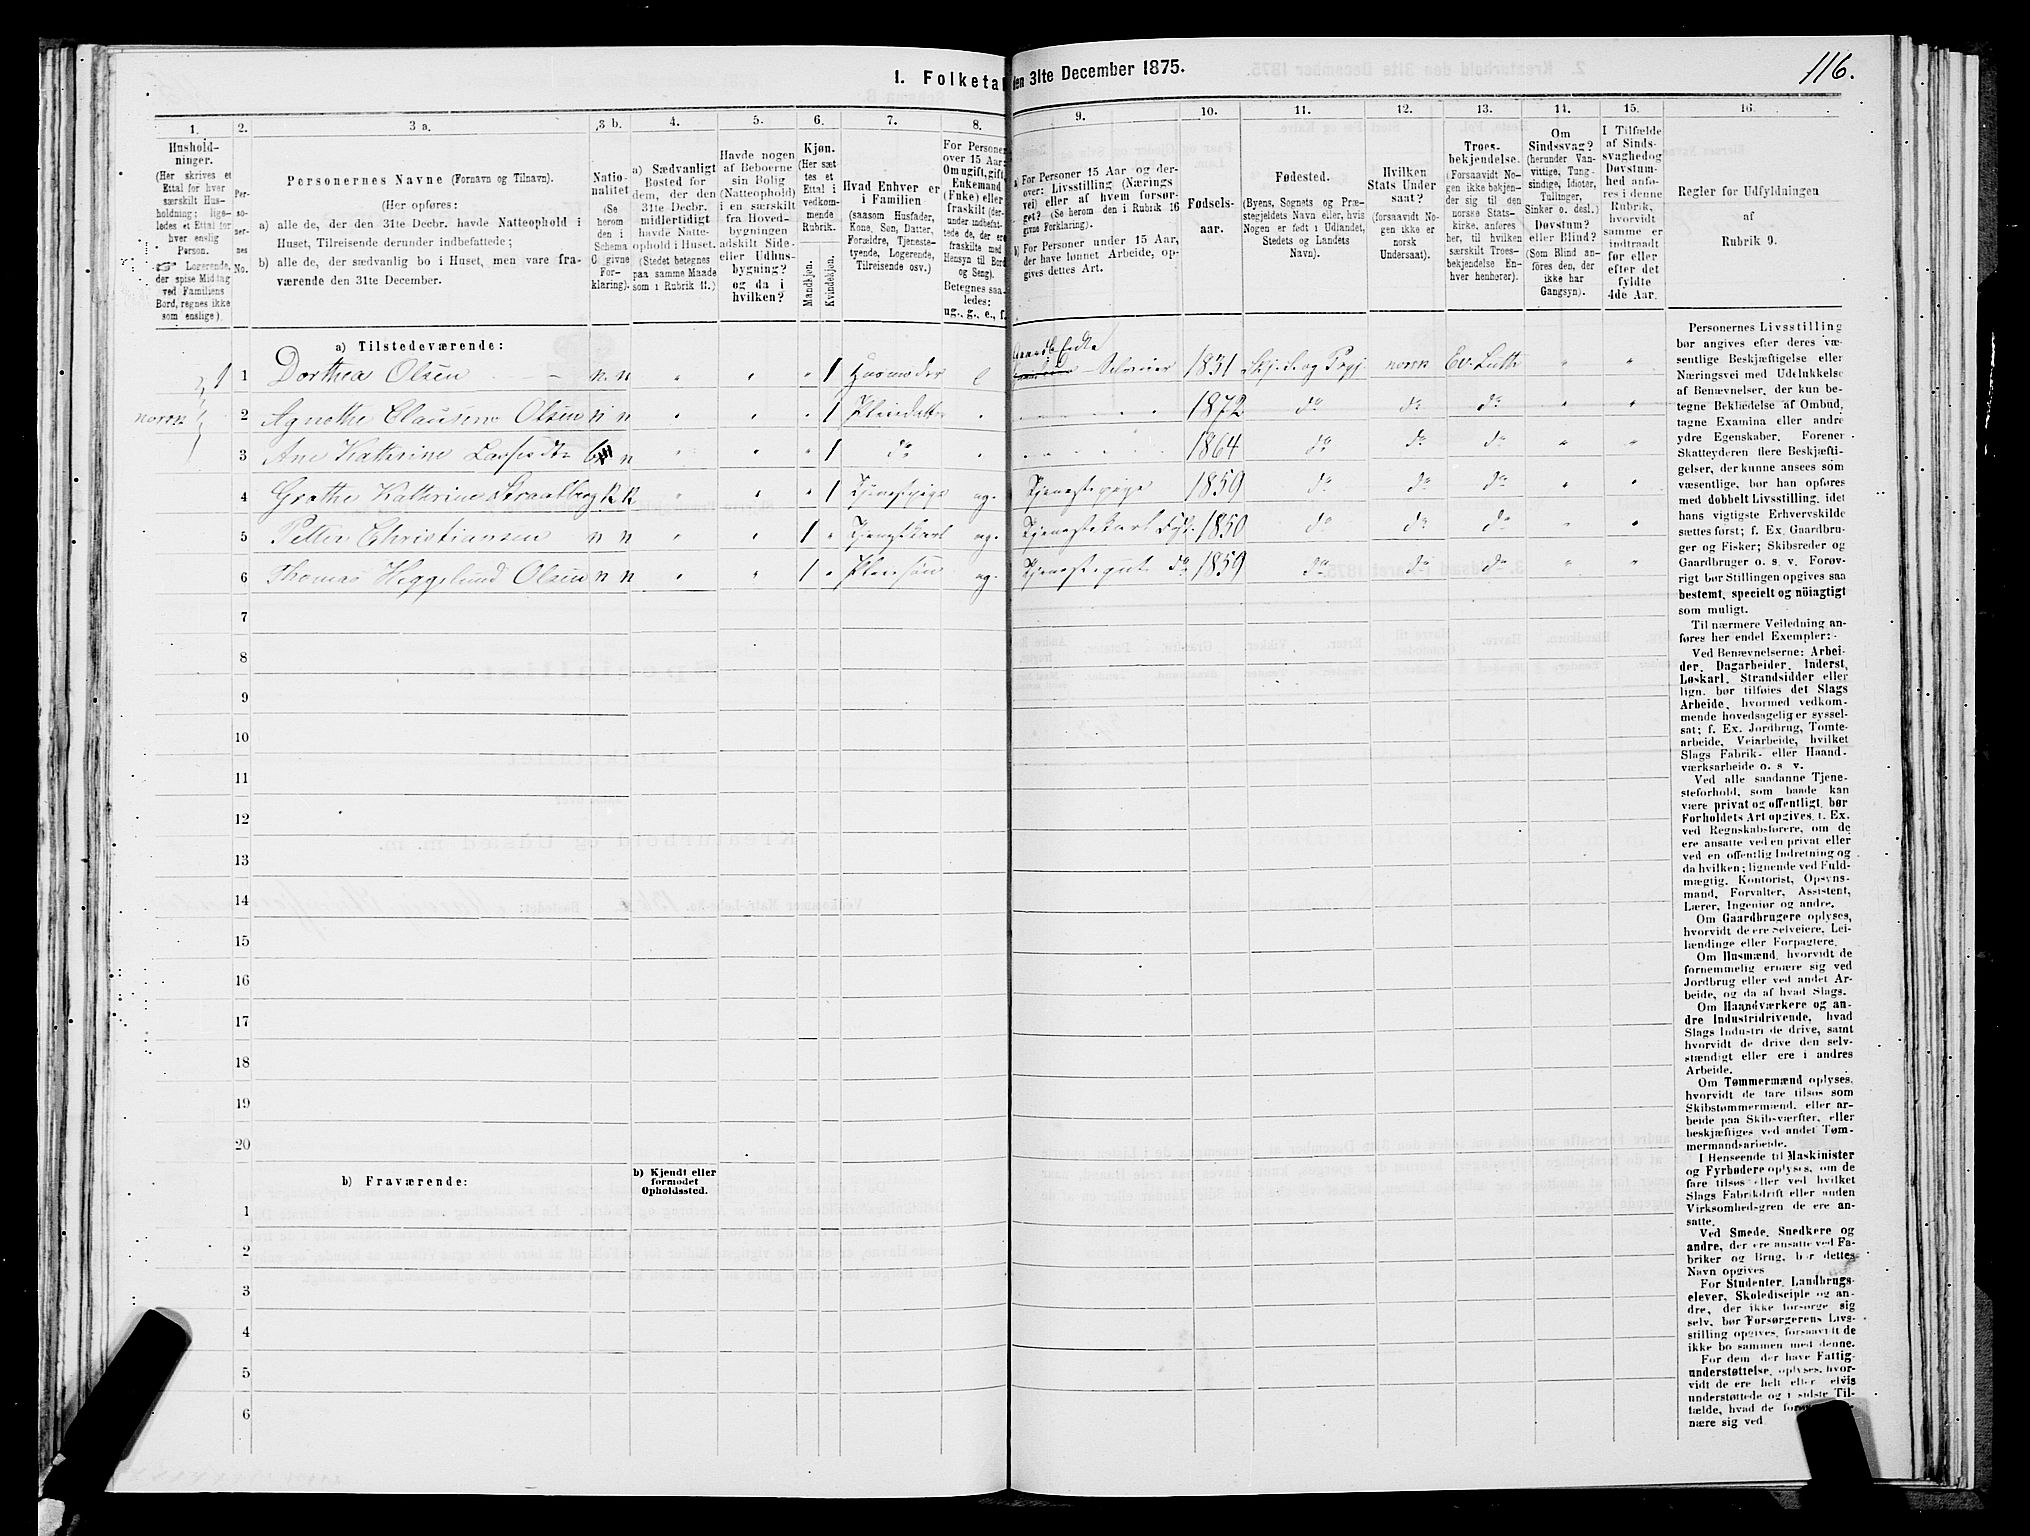 116.
1. Folketal den 31te December 1875.
1. 2. 3 a. 3 b. 4. 5. 6. 7. 8. 9. 10. 11. 12. 13. 14. 15. 16.
Hushold-
ninger.
(Her skrives et
Ettal for hver
særskilt Hus-
holdning; lige-
ledes et Ettal for
hver enslig
Person.
Logerende,
der spise Middag
ved Familiens
Bord, regnes ikke
som enslige).
Per-
so-
ner-
nes
No.
Personernes Navne (Fornavn og Tilnavn).
(Her opføres:
a) alle de, der den 31te Decbr. havde Natteophold i
Huset, Tilreisende derunder indbefattede;
b) alle de, der sædvanlig bo i Huset, men vare fra-
værende den 31te December.
Natio-
nalitet
(Se
herom
den i
Schema
C givne
For-
klaring).
a) Sædvanligt
Bosted for
dem, der den
31te Decbr.
midlertidigt
havde Natte-
ophold i Huset.
(Stedet betegnes
paa samme Maade
som i Rubrik 11.)
Havde nogen
af Beboerne
sin Bolig
(Natteophold)
i en særskilt
fra Hoved-
bygningen
adskilt Side-
eller Udhus-
bygning?
og da i
hvilken?
Kjøn.
(Her sæt-
tes et
Ettal i
vedkom-
mende
Rubrik.
Mandkjøn.
Kvindekjøn.
Hvad Enhver er
i Familien
(saasom Husfader,
Kone, Søn, Datter,
Forældre, Tjeneste-
tyende, Logerende,
Tilreisende osv.)
For Personer
over 15 Aar:
Om ugift, gift,
Enkemand
(Enke) eller
fraskilt (der-
under indbefat-
tede de, der ere
fraskilte med
Hensyn til Bord
og Seng).
Betegnes saa-
ledes:
ug., g., e., f.
a) For Personer 15 Aar og der-
over: Livsstilling (Nærings-
vei) eller af hvem forsør-
get? (Se herom den i Rubrik 16
givne Forklaring).
b) For Personer under 15 Aar,
der have lønnet Arbeide, op-
gives dettes Art.
Fødsels-
aar.
Fødested.
(Byens, Sognets og Præ-
stegjeldets Navn eller, hvis
Nogen er født i Udlandet,
Stedets og Landets
Navn).
Hvilken
Stats Under-
saat?
(forsaavidt No-
gen ikke er
norsk
Undersaat).
Troes-
bekjendelse.
(Forsaavidt No-
gen ikke bekjen-
der sig til den
norske Stats-
kirke, anfø-
res her, til hvilken
særskilt Troes-
bekjendelse En-
hver henhører).
Om
Sindssvag?
(herunder Van-
vittige, Tung-
sindige, Idioter,
Tullinger,
Sinker o. desl.)
Døvstum?
eller Blind?
(Som Blind an-
føres den, der
ikke har
Gangsyn).
I Tilfælde
af Sinds-
svaghed og
Døvstum-
hed anfø-
res i denne
Rubrik,
hvorvidt
samme er
indtraadt
før eller
efter det
fyldte
4de Aar.
Regler for Udfyldningen
af
Rubrik 9.
a) Tilstedeværende:
1 1 Dorthea Olsen n. n " " " 1 Husmoder e Selveier 1831 norsk Ev. Luth " "
norsk 2 Agnethe Clausine Olsen n n " " " 1 Pleiedatter " 1872 do do do " "
3 Ane Kathrine n " " " 1 do " 1864 do do do " "
4 Grethe Kathrine " " " 1 Tjenestepige ug. Tjenestepige 1859 do do do " "
5 Petter Christiansen n n " " 1 " ug. Tjenestekarl 1850 do do do " "
6 Thomas Heggelund Olsen n n " " 1 " Pleiesøn ug. Tjenestegut do 1859 do do do " "
7
8
9
10
11
12
13
14
15
16
17
18
19
20
b) Fraværende:
b) Kjendt eller
formodet
Opholdssted.
1
2
3
4
5
6
Personernes Livsstilling
bør angives efter deres væ-
sentlige Beskjæftigelse eller
Næringsvei med Udelukkelse
af Benævnelser, der kun be-
tegne Beklædelse af Ombud,
tagne Examina eller andre
ydre Egenskaber. Forener
Skatteyderen flere Beskjæfti-
gelser, der kunne ansees som
væsentlige, bør han opføres
med dobbelt Livsstilling, idet
hans vigtigste Erhvervskilde
sættes først; f. Ex. Gaardbru-
ger og Fisker; Skibsreder og
Gaardbruger o. s. v. Forøv-
rigt bør Stillingen opgives saa
bestemt, specielt og nöiagtigt
som muligt.
Til nærmere Veiledning an-
føres her endel Exempler:
Ved Benævnelserne: Arbei-
der, Dagarbeider, Inderst,
Løskarl, Strandsidder eller
lign. bør tilføies det Slags
Arbeide, hvormed vedkom-
mende hovedsagelig er syssel-
sat; f. Ex. Jordbrug, Tomte-
arbeide, Veiarbeide, hvilket
Slags Fabrik- eller Haand-
værksarbeide o. s. v.
Ved alle saadanne Tjene-
steforhold, som baade kan
være privat og offentligt, bør
Forholdets Art opgives, f. Ex.
ved Regnskabsførere, om de
ere ansatte ved en privat eller
ved en offentlig Indretning og
da hvilken; lignende ved Fuld-
mægtig, Kontorist, Opsyns-
mand, Forvalter, Assistent,
Lærer, Ingeniør og andre.
Om Gaardbrugere oplyses,
hvorvidt de ere Selveiere, Lei-
lændinge eller Forpagtere.
Om Husmænd, hvorvidt de
fornemmelig ernære sig ved
Jordbrug eller ved andet Ar-
beide, og da af hvad Slags.
Om Haandværkere og an-
dre Industridrivende, hvad
Slags Industri de drive, samt
hvorvidt de drive den selv-
stændigt eller ere i andres
Arbeide.
Om Tømmermænd oplyses,
hvorvidt de fare tilsøs som
Skibstømmermænd, eller ar-
beide paa Skibsværfter, eller
beskjæftiges ved andet Tøm-
mermandsarbeide.
I Henseende til Maskinister
og Fyrbødere oplyses, om de
fare tilsøs eller ved hvilket
Slags Fabrikdrift eller anden
Virksomhedsgren de ere an-
satte.
Ved Smede, Snedkere og
andre, der ere ansatte ved Fa-
briker og Brug, bør dettes
Navn opgives
For Studenter, Landbrugs-
elever, Skoledisciple og an-
dre, der ikke forsørge sig
selv, bør Forsørgerens Livs-
stilling opgives, forsaavidt de
ikke bo sammen med denne.
For dem, der have Fattig-
understøttelse, oplyses, hvor-
vidt de ere helt eller delvis
understøttede og i sidste Til-
fælde, hvad de
nære sig ved